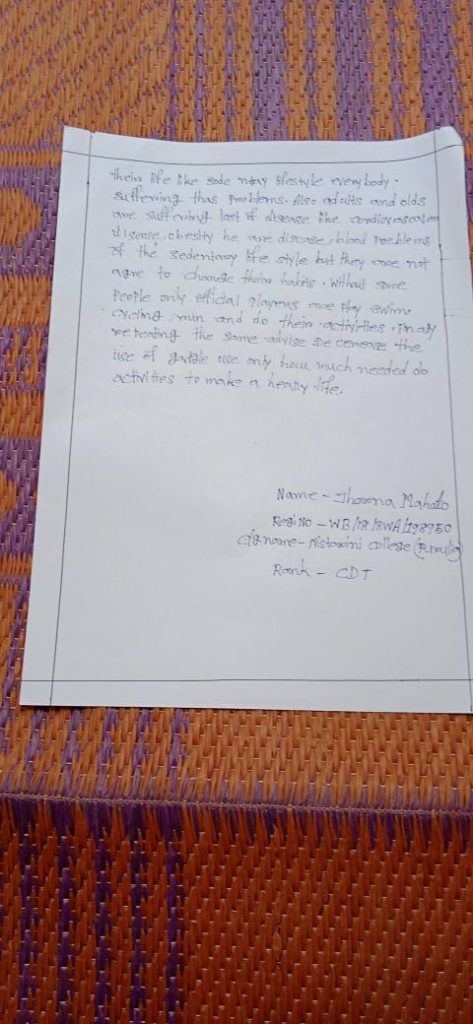 their life like sede ntary lifestyle every body.
suffering thas problems. Also adults and olds
are suffering lost of disease like cardiovascular
disease, obesity he are disease, blood problems
of the sedentary life style but they are not
agre to change their habits. Without some
People only official players are they swim
cycling run and do their activities.
repeating the same advise De cerease the
use of use only how much needed do
activities to make a life.
Name - Jharna Mahato
Regi No - WB/18/SWA/198950
clg name - Nistarini college (Purulia)
Rank - CDT